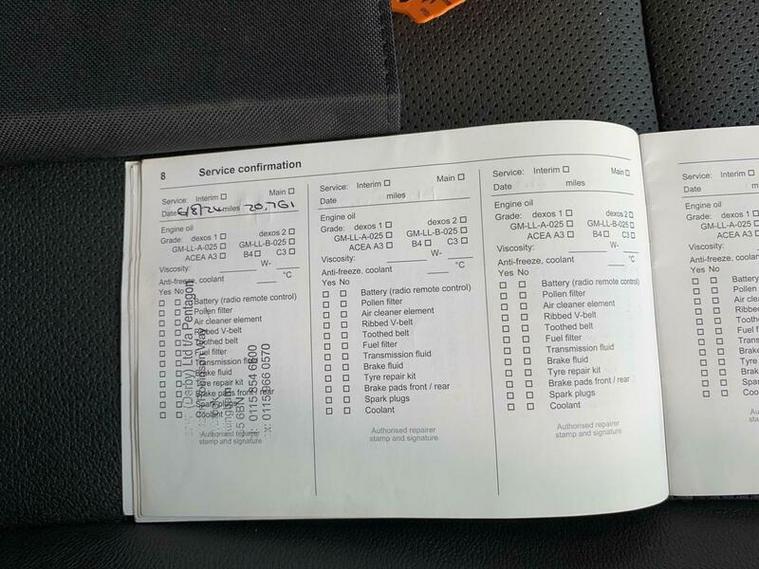 8 Service confirmation
Service: Interim Main
Date 6/8/24 miles 20,761
Engine oil
Grade: dexos 1 dexos 2
GM-LL-A-025 GM-LL-B-025
ACEA A3 B4 C3
Viscosity: W-
Anti-freeze, coolant °C
Yes No
Battery (radio remote control)
Pollen filter
Air cleaner element
Ribbed V-belt
Toothed belt
Fuel filter
Transmission fluid
Brake fluid
Tyre repair kit
Brake pads front / rear
Spark plugs
Coolant
Authorised repairer
stamp and signature
(Darby) Ltd t/a Pentagon
Way
6BN
0115 854 6600
0115 866 0570
Service: Interim Main
Date miles
Engine oil
Grade: dexos 1 dexos 2
GM-LL-A-025 GM-LL-B-025
ACEA A3 B4 C3
Viscosity: W-
Anti-freeze, coolant °C
Yes No
Battery (radio remote control)
Pollen filter
Air cleaner element
Ribbed V-belt
Toothed belt
Fuel filter
Transmission fluid
Brake fluid
Tyre repair kit
Brake pads front / rear
Spark plugs
Coolant
Authorised repairer
stamp and signature
Service: Interim Main
Date miles
Engine oil
Grade: dexos 1 dexos 2
GM-LL-A-025 GM-LL-B-025
ACEA A3 B4 C3
Viscosity: W-
Anti-freeze, coolant °C
Yes No
Battery (radio remote control)
Pollen filter
Air cleaner element
Ribbed V-belt
Toothed belt
Fuel filter
Transmission fluid
Brake fluid
Tyre repair kit
Brake pads front / rear
Spark plugs
Coolant
Authorised repairer
stamp and signature
Service: Interim
Date m
Engine oil
Grade: dexos 1
GM-LL-A-025
ACEA A3
Viscosity:
Anti-freeze, coolant
Yes No
Battery
Pollen
Air cle
Ribbe
Tooth
Fuel f
Trans
Brake
Tyre
Brak
Spa
Coo
Au
sta